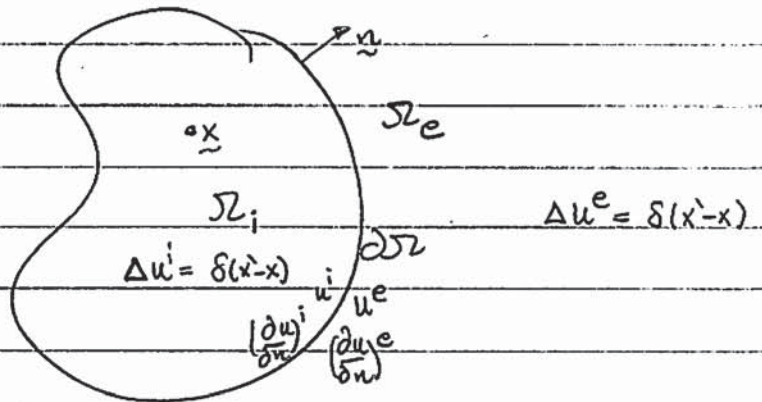 n
Ω_e
•x
Ω_i
Δu^e = δ(x'-x)
∂Ω
Δu^i = δ(x'-x)
u^i u^e
(∂u/∂n)^i (∂u/∂n)^e